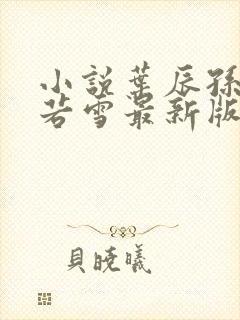 小說葉辰孫
若雪最新版
貝曉曦